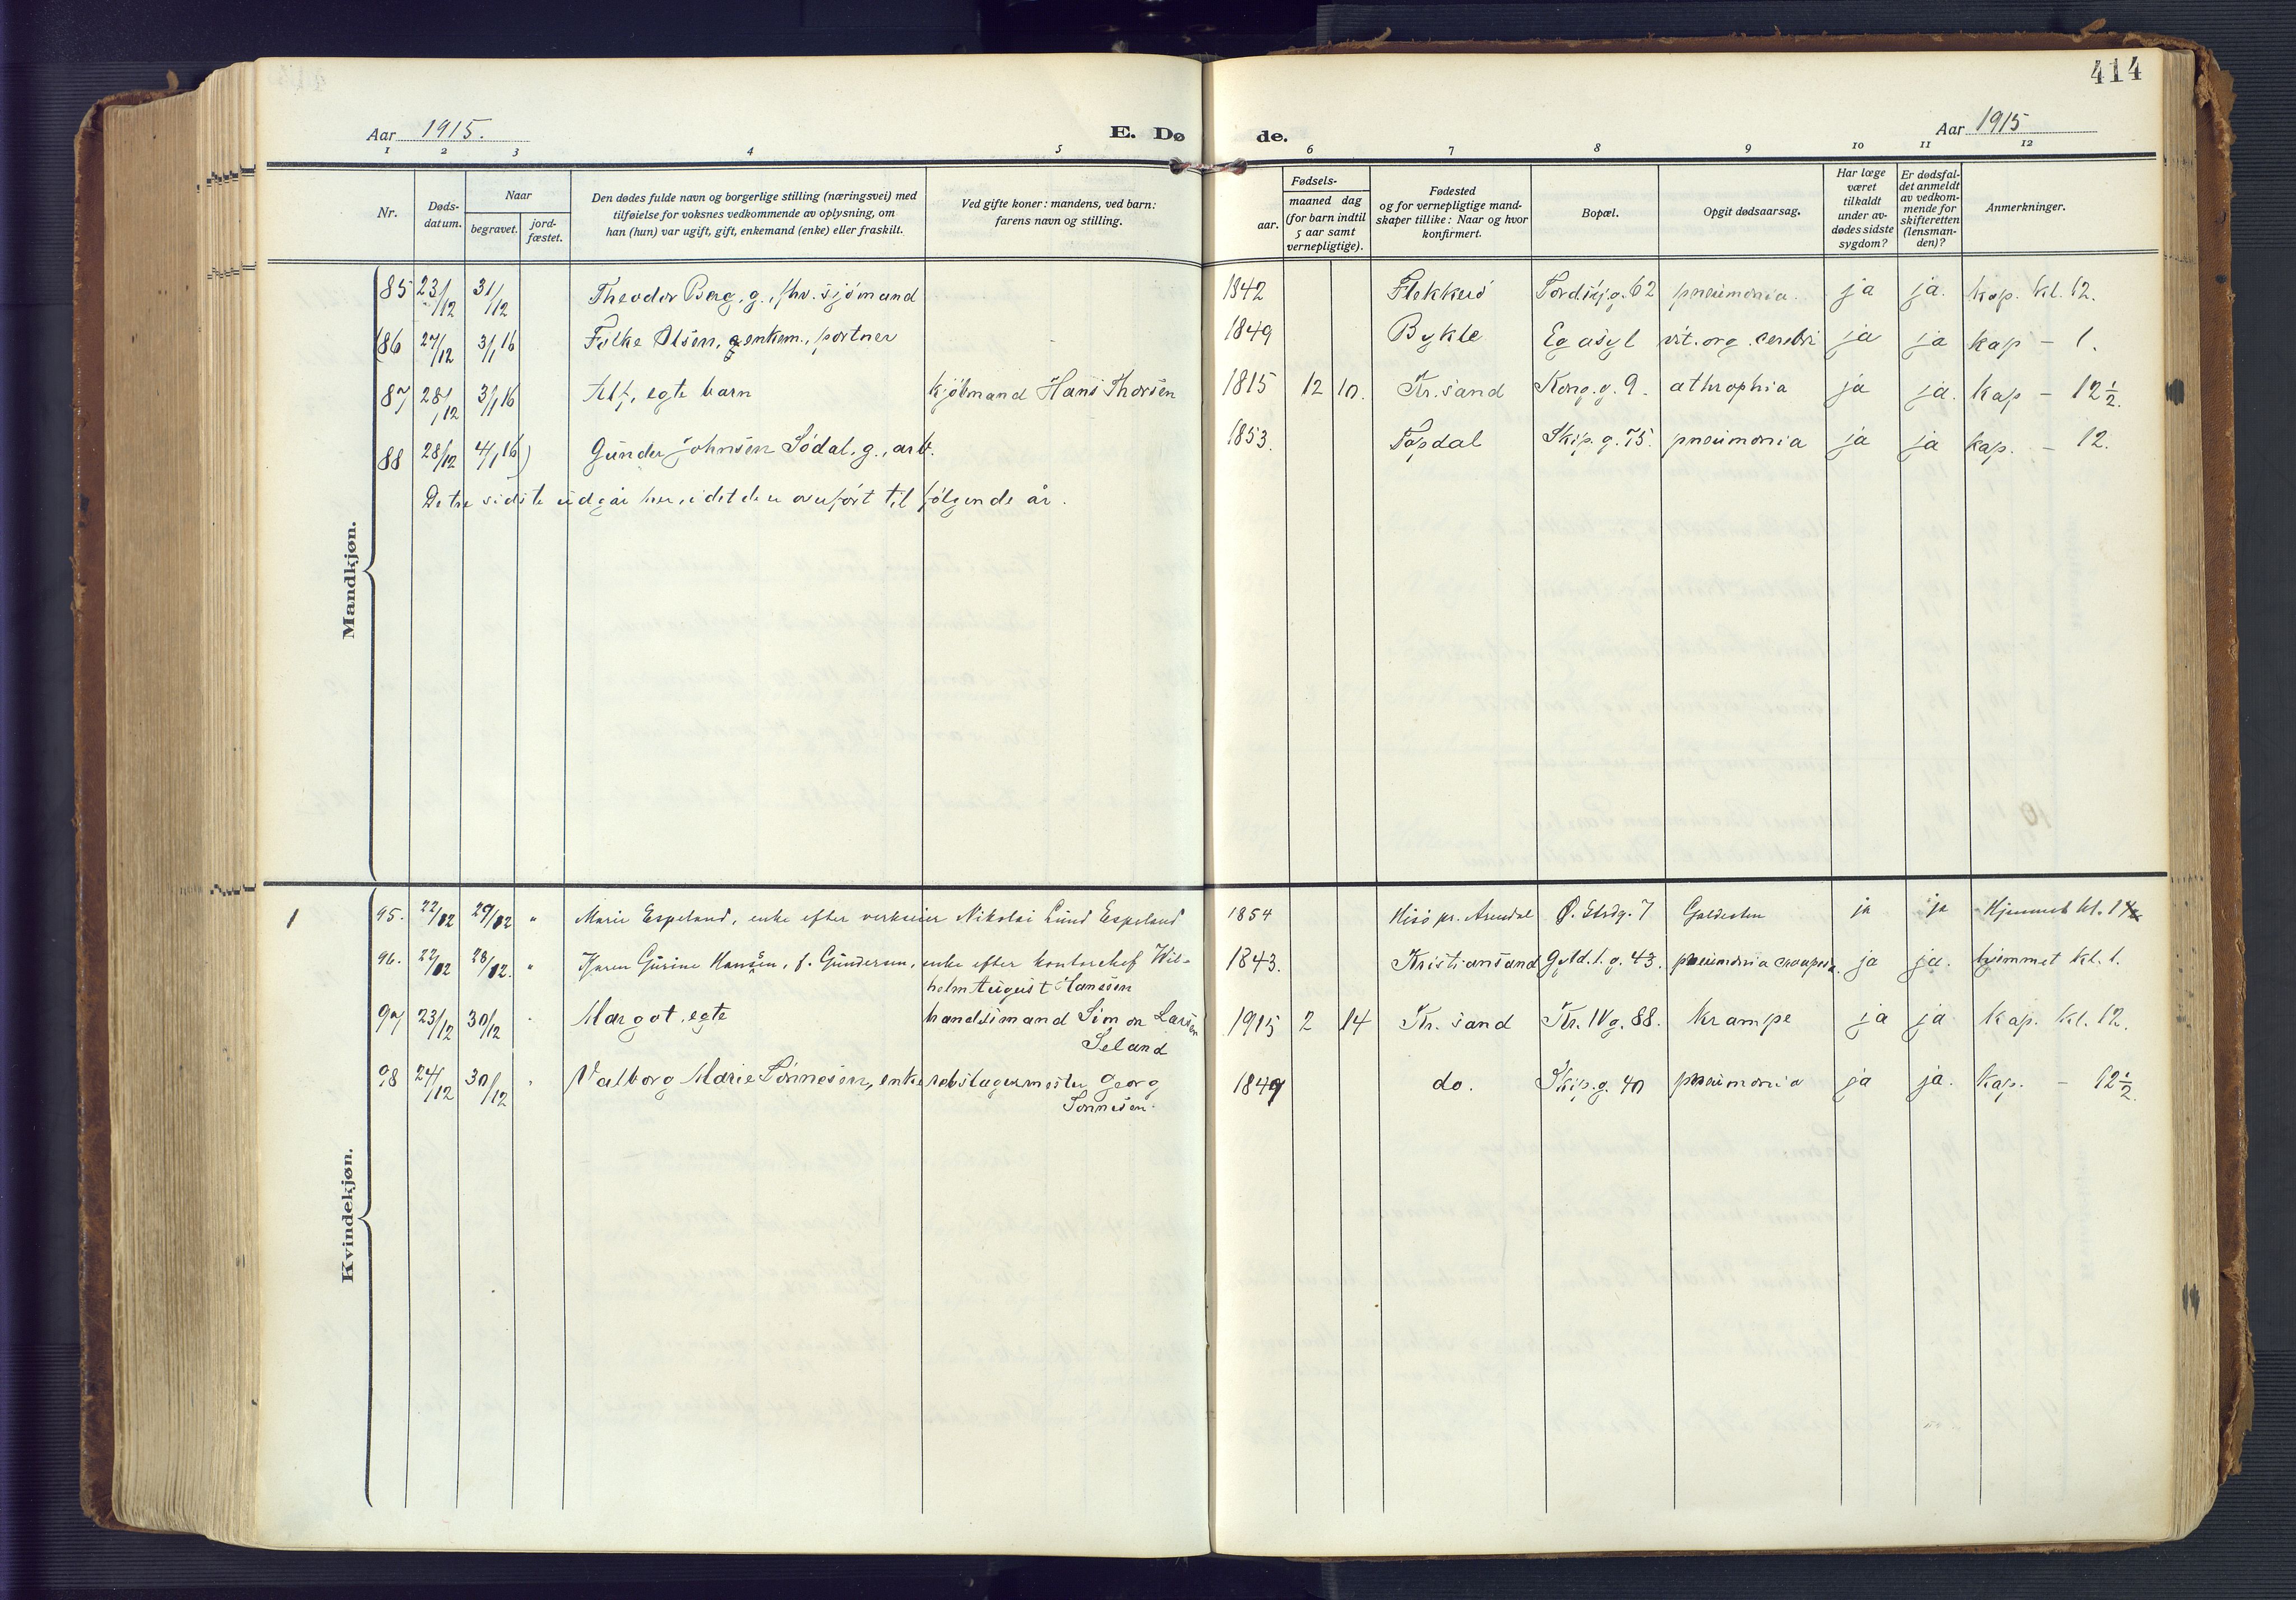 414
Aar 1915.
E. Dø de.
Aar 1915
1 2 3 4 5 6 7 8 9 10 11 12
Nr.
Døds-
datum.
Naar
begravet.
jord-
fæstet.
Den dødes fulde navn og borgerlige stilling (næringsvei) med
tilføielse for voksnes vedkommende av oplysning, om
han (hun) var ugift, gift, enkemand (enke) eller fraskilt.
Ved gifte koner: mandens, ved barn:
farens navn og stilling.
Fødsels-
aar.
maaned dag
(for barn indtil
5 aar samt
vernepligtige).
Fødested
og for vernepligtige mand-
skaper tillike: Naar og hvor
konfirmert.
Bopæl.
Opgit dødsaarsag.
Har læge
været
tilkaldt
under av-
dødes sidste
sygdom?
Er dødsfal-
det anmeldt
av vedkom-
mende for
skifteretten
(lensman-
den)?
Anmerkninger.
Mandkjøn.
85 23/12 31/12 Theodor Berg, g., fhv. sjømand 1842 Flekkerö Tordskj.g. 62 pneumonia. ja ja. kap. kl. 12.
86 27/12 3/1 16 Folke Olsen, enkem., portner 1849 Bykle Eg asyl vit. org. cerebri ja ja kap - 1.
87 28/12 3/1 16 Alf, egte barn kjöbmand Hans Thorsen 1815 12 10. Kr.sand Kong.g. 9. athrophia ja ja. kap - 12 1/2.
88 28/12 4/1 16) Gunder Johnsen Södal, g., arb. 1853. Topdal Skip.g. 75. pneumonia ja ja kap. - 12.
De tre sidste udgår her, idet de er overført til følgende år.
Kvindekjøn.
1 95. 22/12 29/12 " Marie Espeland, enke efter verkseier Nikolai Lund Espeland 1854 Hisö pr. Arendal Ø. Strdg. 7 Galdesten ja ja Hjemmet kl. 1
96. 22/12 28/12. " Karen Gurine Hanssen, f. Gundersen, enke efter kontorchef Wil-
helm August Hanssen 1843. Kristiansand Gyld.l.g. 43. pneumonia crouposa. ja ja. hjemmet kl. 1.
97 23/12 30/12 " Margot, egte handelsmand Simon Larsen
Seland 1915 2 14 Kr. sand Kr. IV g. 88. krampe ja ja kap. kl. 12.
98 24/12 30/12 " Valborg Marie Sönnesen, enke rebslagermester Georg
Sönnesen. 1849 do. Skip.g. 40 pneumonia ja ja. Kap. - 12 1/2.